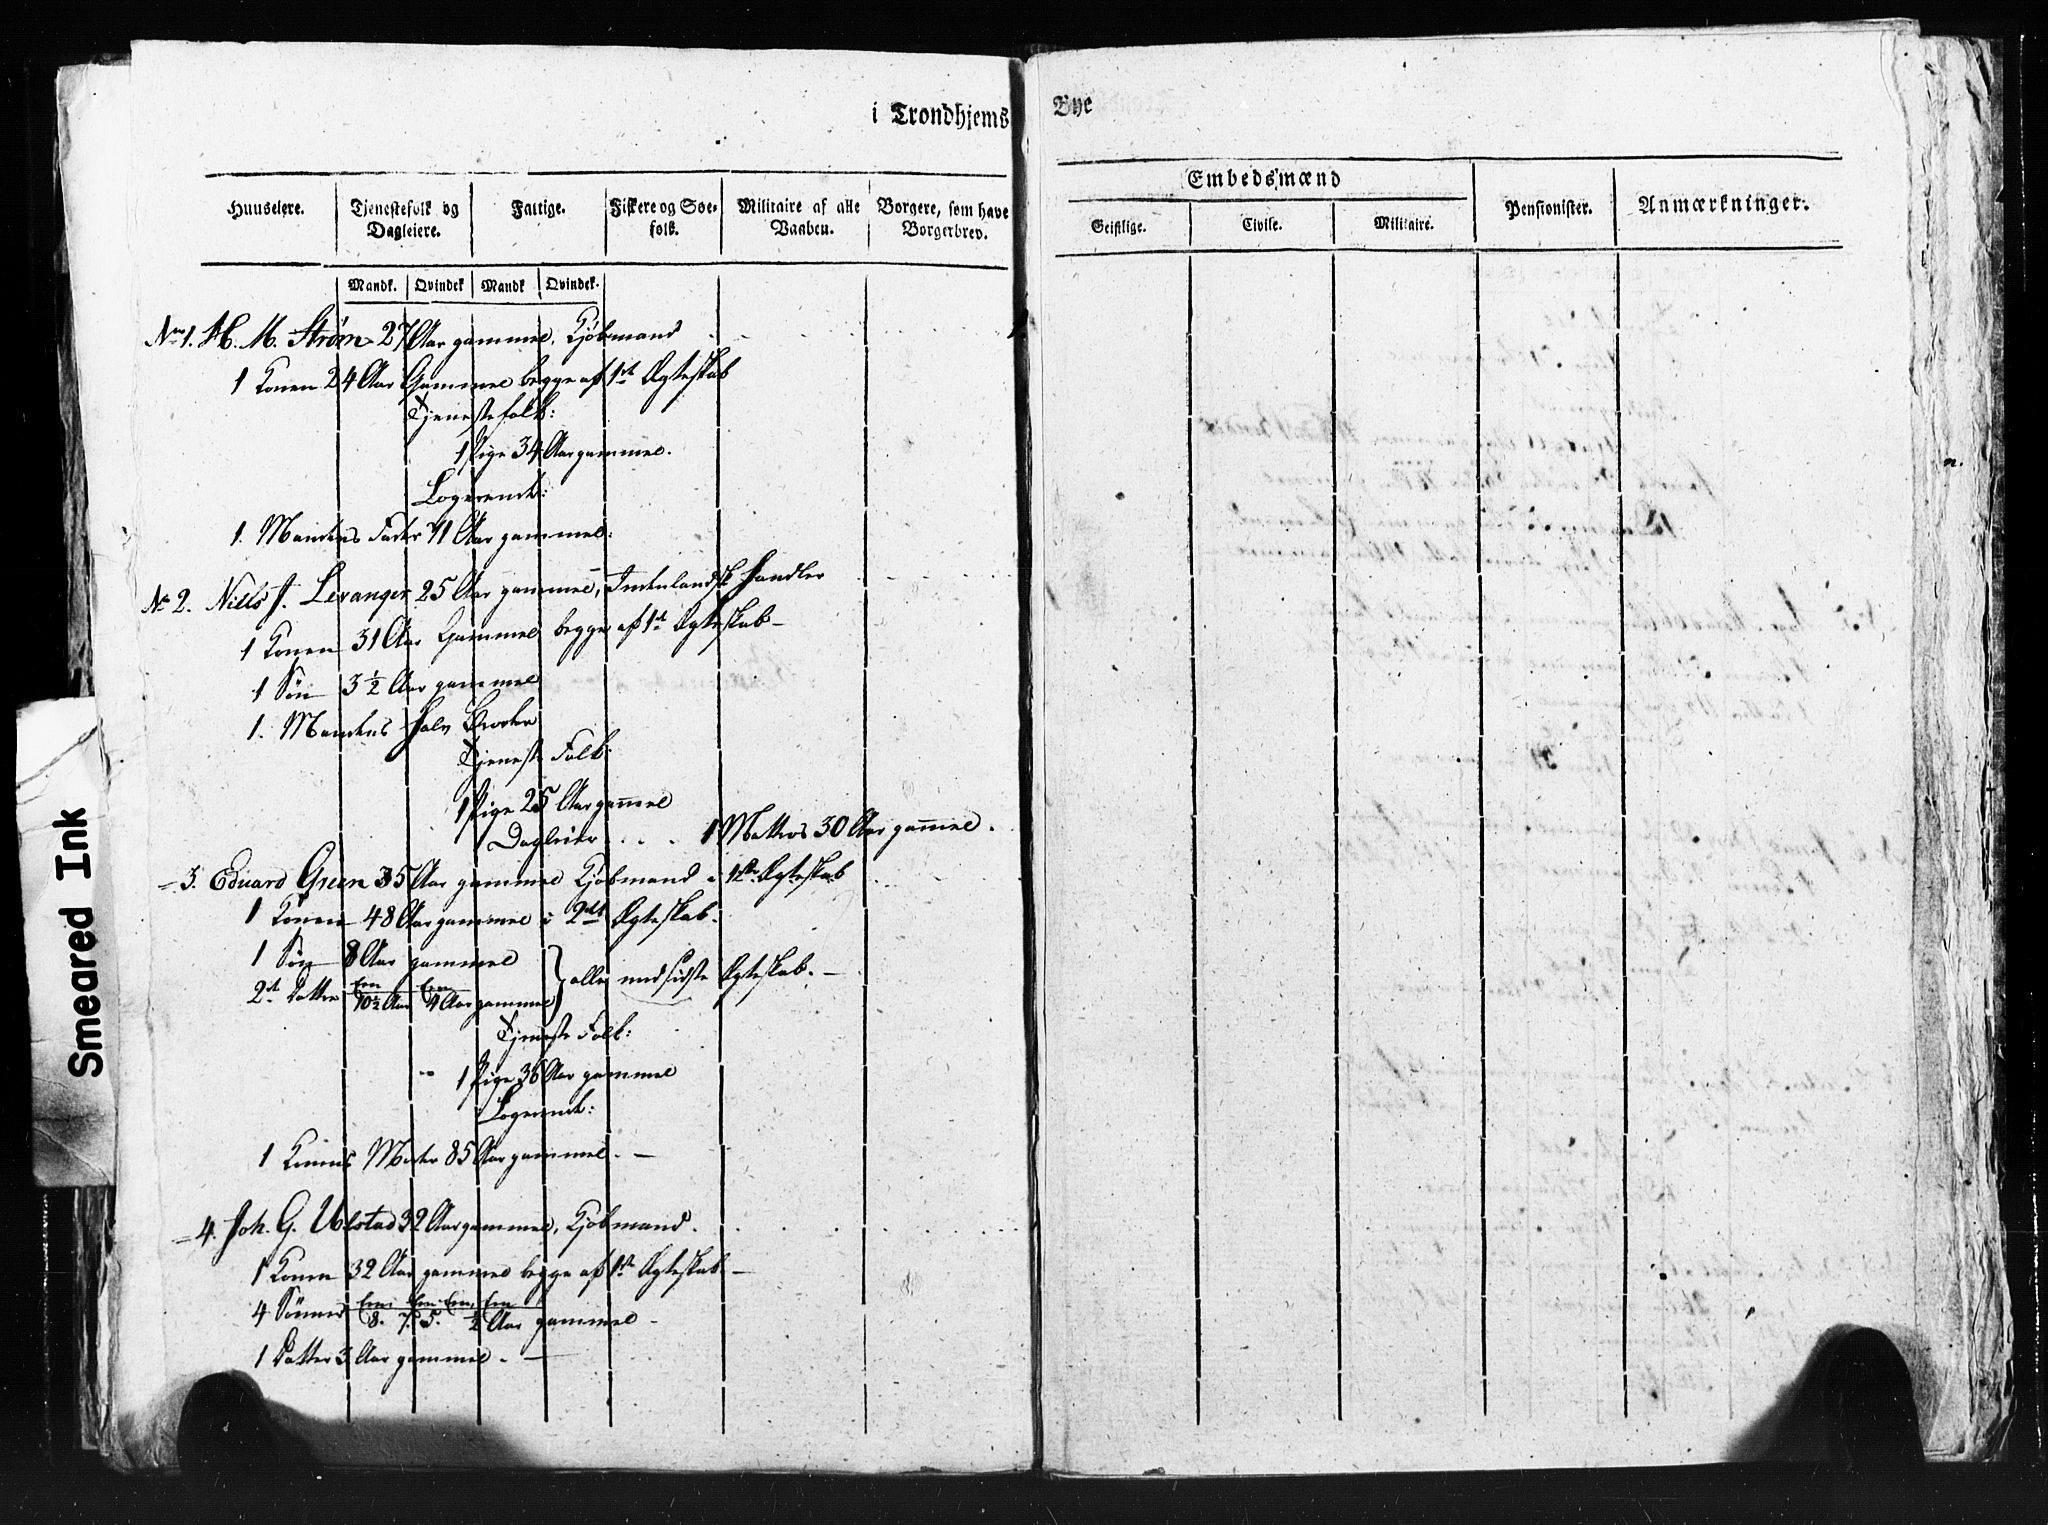 i Trondhjems Bye
Huuseiere. Tjenestefolk og Dagleiere. Fattige. Fiskere og Søefolk. Militaire af alle Vaaben. Borgere, som have Borgerbrev.
Embedsmænd
Geistlige. Civile. Militaire. Pensionister. Anmærkninger.
Mandk. Qvindek Mandk Qvindek.
No 1. H. M. Strøm 27 Aar gammel, Kjøbmand
1 Konen 24 Aar Gammel begge af 1st Ægteskab
Tjenestefolk:
1 Pige 34 Aar gammel.
Logerende:
1. Mandens Fader 71 Aar gammel.
No 2. Niels J. Levanger 25 Aar gammel, Indenlandsk Handler
1 Konen 31 Aar Gammel begge af 1st Ægteskab -
1 Søn 3 1/2 Aar gammel
1. Mandens Halv Broder
Tjeneste Folk:
1 Pige 25 Aar gammel
Dagleier . . . . 1 Matros 30 Aar gammel.
= 3. Eduard Green 35 Aar gammel Kjøbmand i 1ste Ægteskab
1 Konen 48 Aar gammel i 2det Ægteskab.
1 Søn 8 Aar gammel
2de Døttre Een 10 1/2 Aar Een 4 Aar gammel } alle med sidste Ægteskab. -
Tjeneste Folk:
" 1 Pige 36 Aar gammel
Logerende:
1 Konens Moder 85 Aar gammel. -
= 4. Joh. G. Ulstad 32 Aar gammel, Kjøbmand.
1 Konen 32 Aar gammel begge af 1ste Ægteskab -
4 Sønner Een 8. Een 7. Een 5. Een 1/2 Aar gammel -
1 Datter 3 Aar gammel. -
Smeared Ink